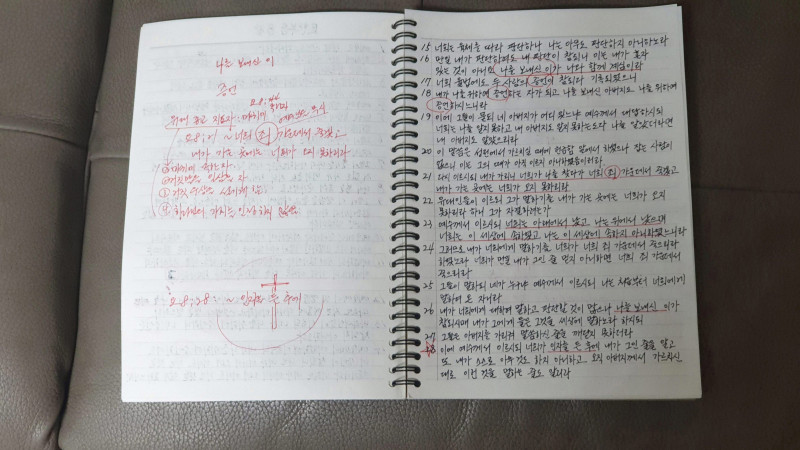 나를 보내신 이
증언
요 8:44
위에 두고 지으자: 마귀의
요 8:21 ~ 너희 죄 가운데서 죽겠고
내가 가는 곳에는 너희가 오지 못하리라
요 8:28 : ~ 인자를 든 후에
15 너희는 육체를 따라 판단하나 나는 아무도 판단하지 아니하노라
16 만일 내가 판단하여도 내 판단이 참되니 이는 내가 혼자
있는 것이 아니요 나를 보내신 이가 나와 함께 계심이라
17 너희 율법에도 두 사람의 증언이 참되다 기록되었으니
18 내가 나를 위하여 증언하는 자가 되고 나를 보내신 아버지도 나를 위하여
증언하시느니라
19 이에 그들이 묻되 네 아버지가 어디 있느냐 예수께서 대답하시되
너희는 나를 알지 못하고 내 아버지도 알지 못하는도다 나를 알았더라면
내 아버지도 알았으리라
20 이 말씀은 성전에서 가르치실 때에 헌금함 앞에서 하셨으나 잡는 사람이
없으니 이는 그의 때가 아직 이르지 아니하였음이러라
21 다시 이르시되 내가 가리니 너희가 나를 찾다가 너희 죄 가운데서 죽겠고
내가 가는 곳에는 너희가 오지 못하리라
22 유대인들이 이르되 그가 말하기를 내가 가는 곳에는 너희가 오지
못하리라 하니 그가 자결하려는가
23 예수께서 이르시되 너희는 아래에서 났고 나는 위에서 났으며
너희는 이 세상에 속하였고 나는 이 세상에 속하지 아니하였느니라
24 그러므로 내가 너희에게 말하기를 너희가 너희 죄 가운데서 죽으리라
하였노라 너희가 만일 내가 그인 줄 믿지 아니하면 너희 죄 가운데서
죽으리라
25 그들이 말하되 네가 누구냐 예수께서 이르시되 나는 처음부터 너희에게
말하여 온 자니라
26 내가 너희에게 대하여 말하고 판단할 것이 많으나 나를 보내신 이가
참되시매 내가 그에게 들은 그것을 세상에 말하노라 하시되
27 그들은 아버지를 가리켜 말씀하신 줄을 깨닫지 못하더라
28 이에 예수께서 이르시되 너희가 인자를 든 후에 내가 그인 줄을 알고
또 내가 스스로 아무것도 하지 아니하고 오직 아버지께서 가르치신
대로 이런 것을 말하는 줄도 알리라